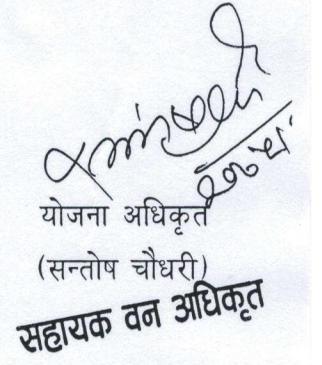 योजना अधिकृत
(सन्तोष चौधरी)
सहायक वन अधिकृत